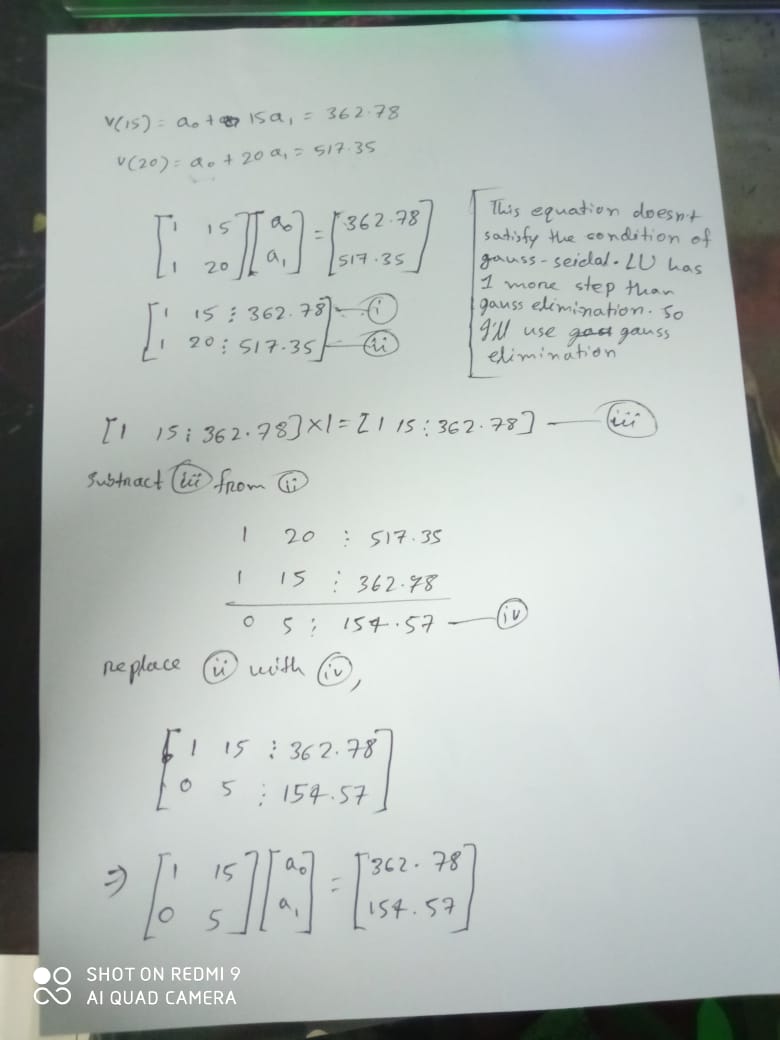 v(15) = a₀ + 15a₁ = 362.78
v(20) = a₀ + 20a₁ = 517.35
[1 15] [a₀] = [362.78]
[1 20] [a₁] [517.35]
This equation doesn't
satisfy the condition of
gauss-seidal. LU has
1 more step than
gauss elimination. So
I'll use gauss
elimination
[1 15 : 362.78] — (i)
[1 20 : 517.35] — (ii)
[1 15 : 362.78] × 1 = [1 15 : 362.78] — (iii)
Subtract (iii) from (ii)
1 20 : 517.35
1 15 : 362.78
0 5 : 154.57 — (iv)
replace (ii) with (iv),
[1 15 : 362.78]
[0 5 : 154.57]
⇒ [1 15] [a₀] = [362.78]
[0 5] [a₁] [154.57]
SHOT ON REDMI 9
AI QUAD CAMERA